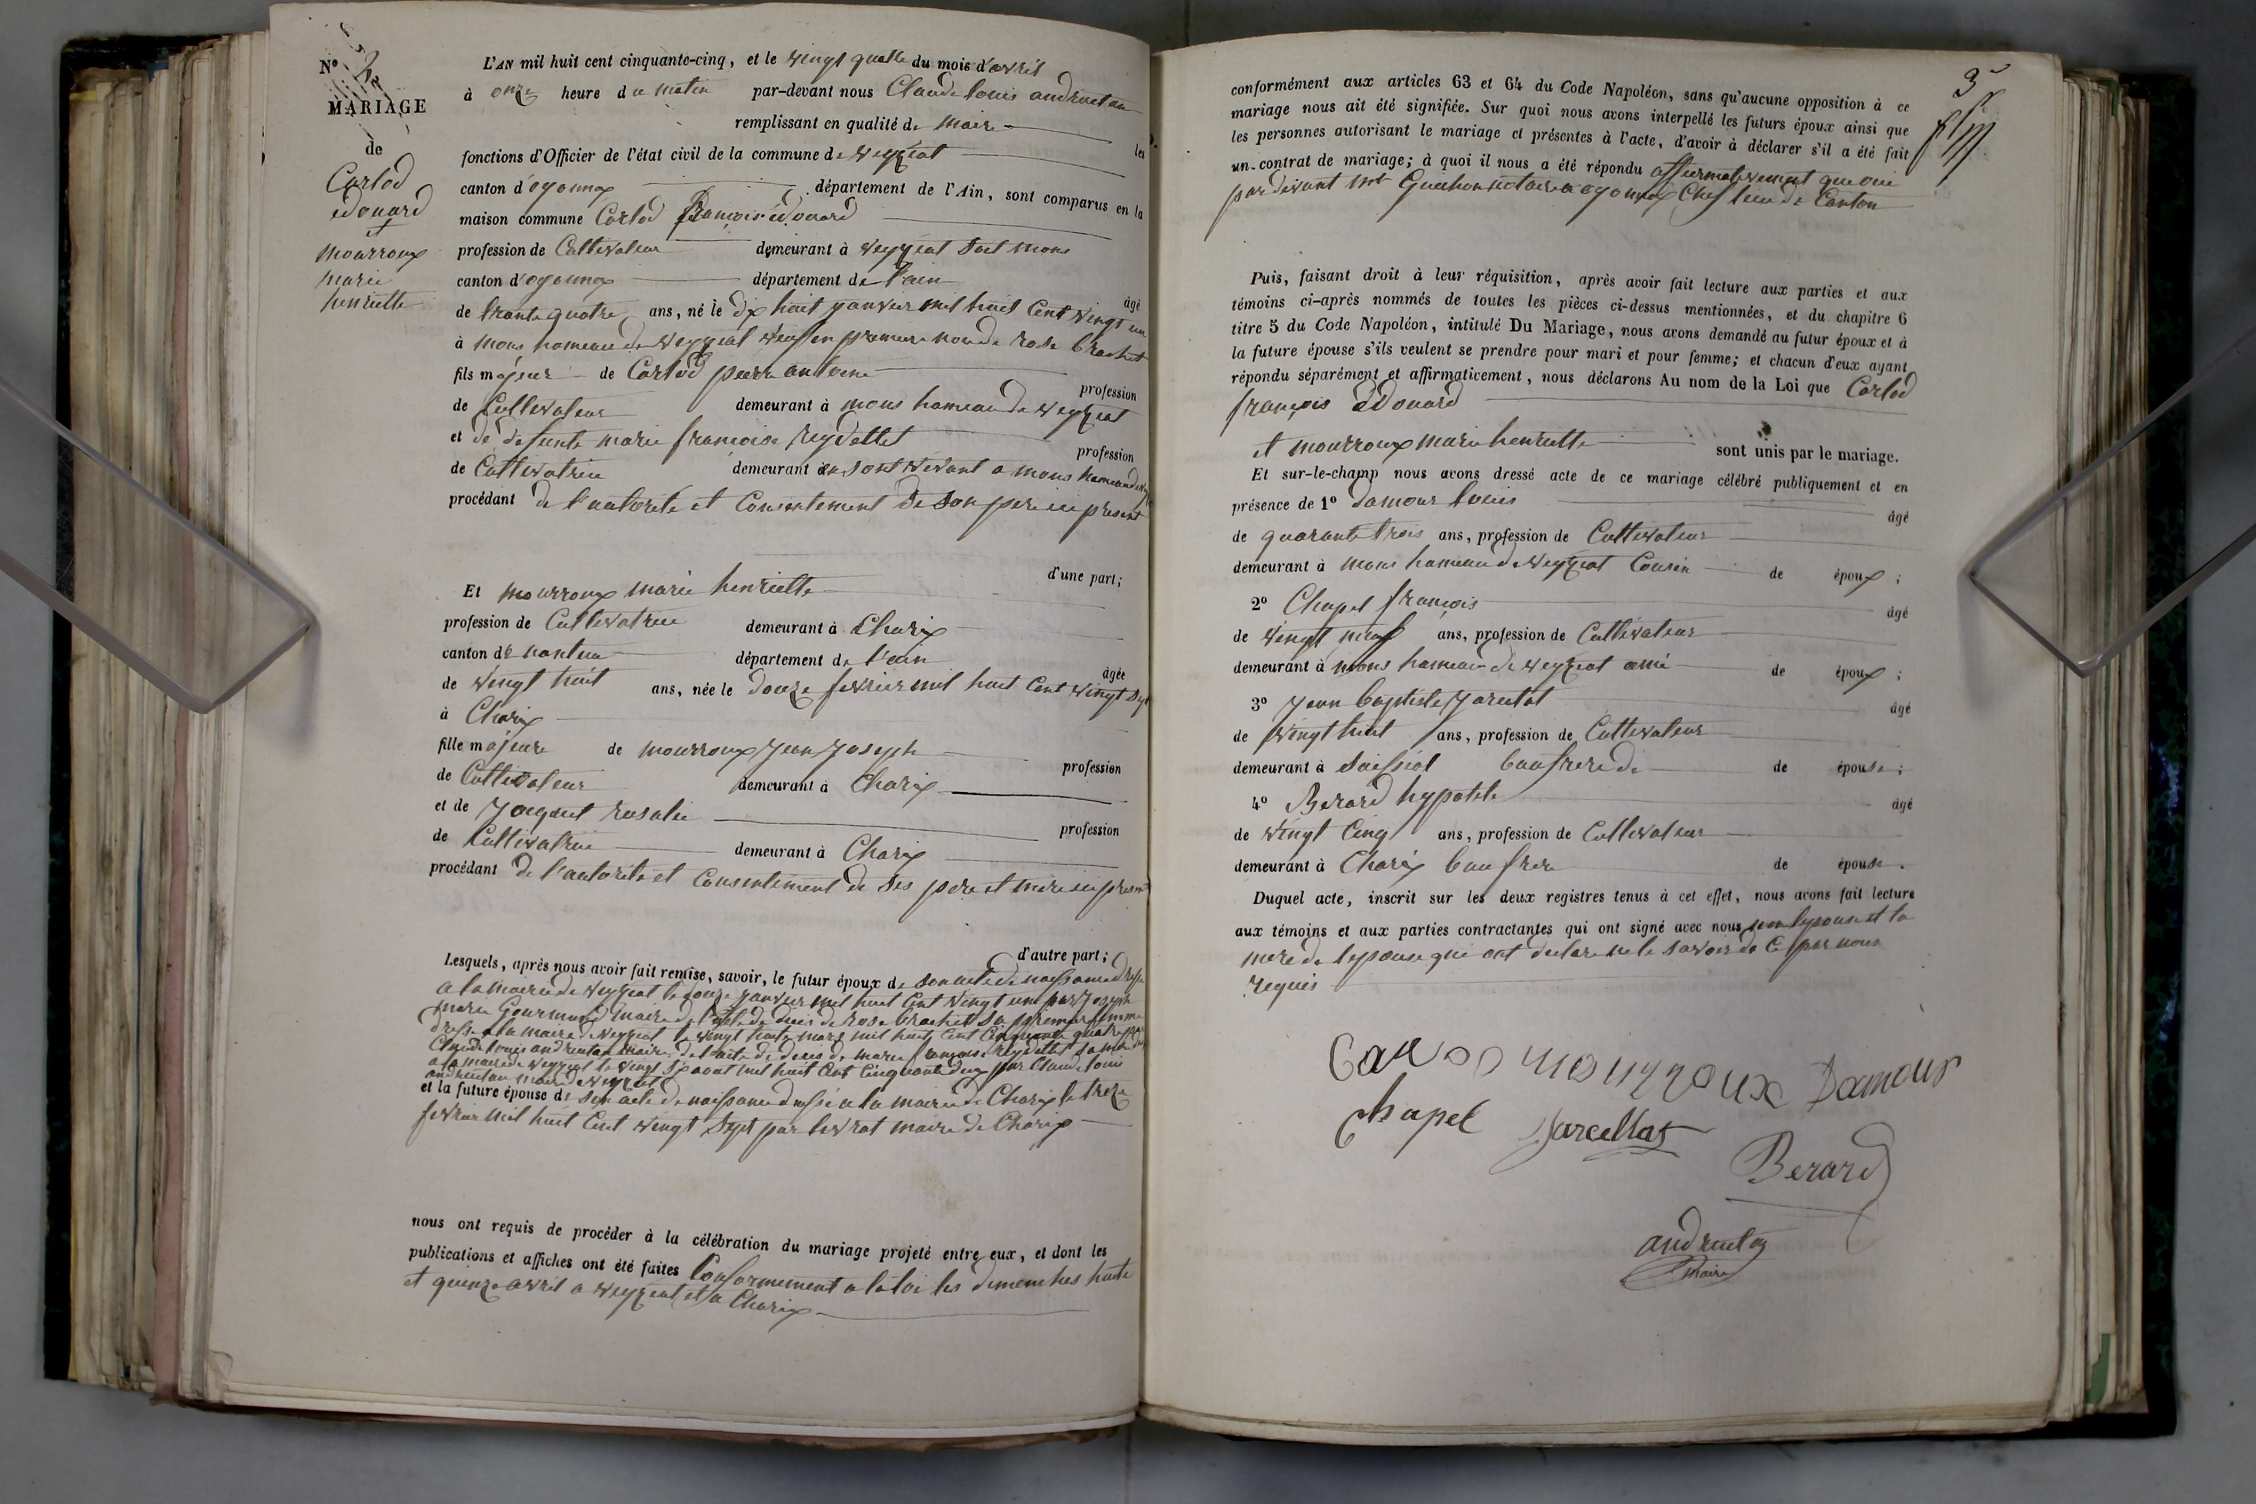 N° 2
MARIAGE
de
Carlod
édouard
et
mourroux
marie
henriette
L'AN mil huit cent cinquante-cinq, et le vingt quatre du mois d'avril
à onze heure du matin par-devant nous Claude louis andruetan
remplissant en qualité de maire les
fonctions d'Officier de l'état civil de la commune de veyziat
canton d'oyonnax département de l'Ain, sont comparus en la
maison commune Carlod françois édouard
profession de Cultivateur demeurant à veyziat soit mons
canton d'oyonnax département de l'ain âgé
de trante quatre ans, né le dix huit janvier mil huit Cent vingt un
à mons hameau de veyziat veuf en premiere nonde rose brachet
fils majeur de Carlod pierre antoine profession
de Cultivateur demeurant à mons hameau de veyziat
et de defunte marie françoise reydellet profession
de Cultivatrice demeurant en sont vivant a mons hameau de
procédant de l'autorité et Consentement de son pere ici present
d'une part;
Et mourroux marie henriette
profession de Cultivatrice demeurant à Charix
canton de nantua département de l'ain âgée
de vingt huit ans, née le douze fevrier mil huit Cent vingt sept
à Charix
fille majeure de mourroux Jean Joseph profession
de Cultivateur demeurant à Charix
et de Jouquet rosalie profession
de Cultivatrice demeurant à Charix
procédant de l'autorité et Consentement de ses pere et mere ici present
d'autre part;
Lesquels, après nous avoir fait remise, savoir, le futur époux de son acte de naissance dressé
a la mairie de veyziat le douze janvier mil huit Cent vingt un par Joseph
marie Gourmand maire de l'acte de deces de rose brachet sa premiere femme
dressé a la mairie de veyziat le vingt huit mars mil huit Cent Cinquante quatre par
Claude louis andruetan maire de l'acte de deces de marie françoise reydellet sa mere
a la mairie de veyziat le vingt six aout mil huit Cent Cinquante deux par Claude louis
andruetan maire de veyziat
et la future épouse de son acte de naissance dressé a la mairie de Charix le treze
fevrier mil huit Cent vingt sept par levrat maire de Charix
nous ont requis de procéder à la célébration du mariage projeté entre eux, et dont les
publications et affiches ont été faites Conformement a la loi les dimanches huit
et quinze avril a veyziat et a Charix
3
conformément aux articles 63 et 64 du Code Napoléon, sans qu'aucune opposition à ce
mariage nous ait été signifiée. Sur quoi nous avons interpellé les futurs époux ainsi que
les personnes autorisant le mariage et présentes à l'acte, d'avoir à déclarer s'il a été fait
un contrat de mariage; à quoi il nous a été répondu affirmativement que oui
par divant Mt Guichon notaire a oyonnax Chef lieu de Canton
Puis, faisant droit à leur réquisition, après avoir fait lecture aux parties et aux
témoins ci-après nommés de toutes les pièces ci-dessus mentionnées, et du chapitre 6
titre 5 du Code Napoléon, intitulé Du Mariage, nous avons demandé au futur époux et à
la future épouse s'ils veulent se prendre pour mari et pour femme; et chacun d'eux ayant
répondu séparément et affirmativement, nous déclarons Au nom de la Loi que Carlod
françois édouard
et mourroux marie henriette sont unis par le mariage.
Et sur-le-champ nous avons dressé acte de ce mariage célébré publiquement et en
présence de 1° damour louis âgé
de quarante trois ans, profession de Cultivateur
demeurant à mons hameau de veyziat Cousin de époux;
2° Chapel françois âgé
de vingt neuf ans, profession de Cultivateur
demeurant à mons hameau de veyziat ami de époux;
3° Jean baptiste Jarcelat âgé
de vingt huit ans, profession de Cultivateur
demeurant à baufrere de de épouse;
4° Berard hypolite âgé
de vingt Cinq ans, profession de Cultivateur
demeurant à Charix baufrere de épouse.
Duquel acte, inscrit sur les deux registres tenus à cet effet, nous avons fait lecture
aux témoins et aux parties contractantes qui ont signé avec nous non lepouse et la
mere de lepouse qui ont declare ne le savoir de Ce par nous
requis
Carlod mourroux Damour
Chapel Jarcellat
Berard
andruetan
maire